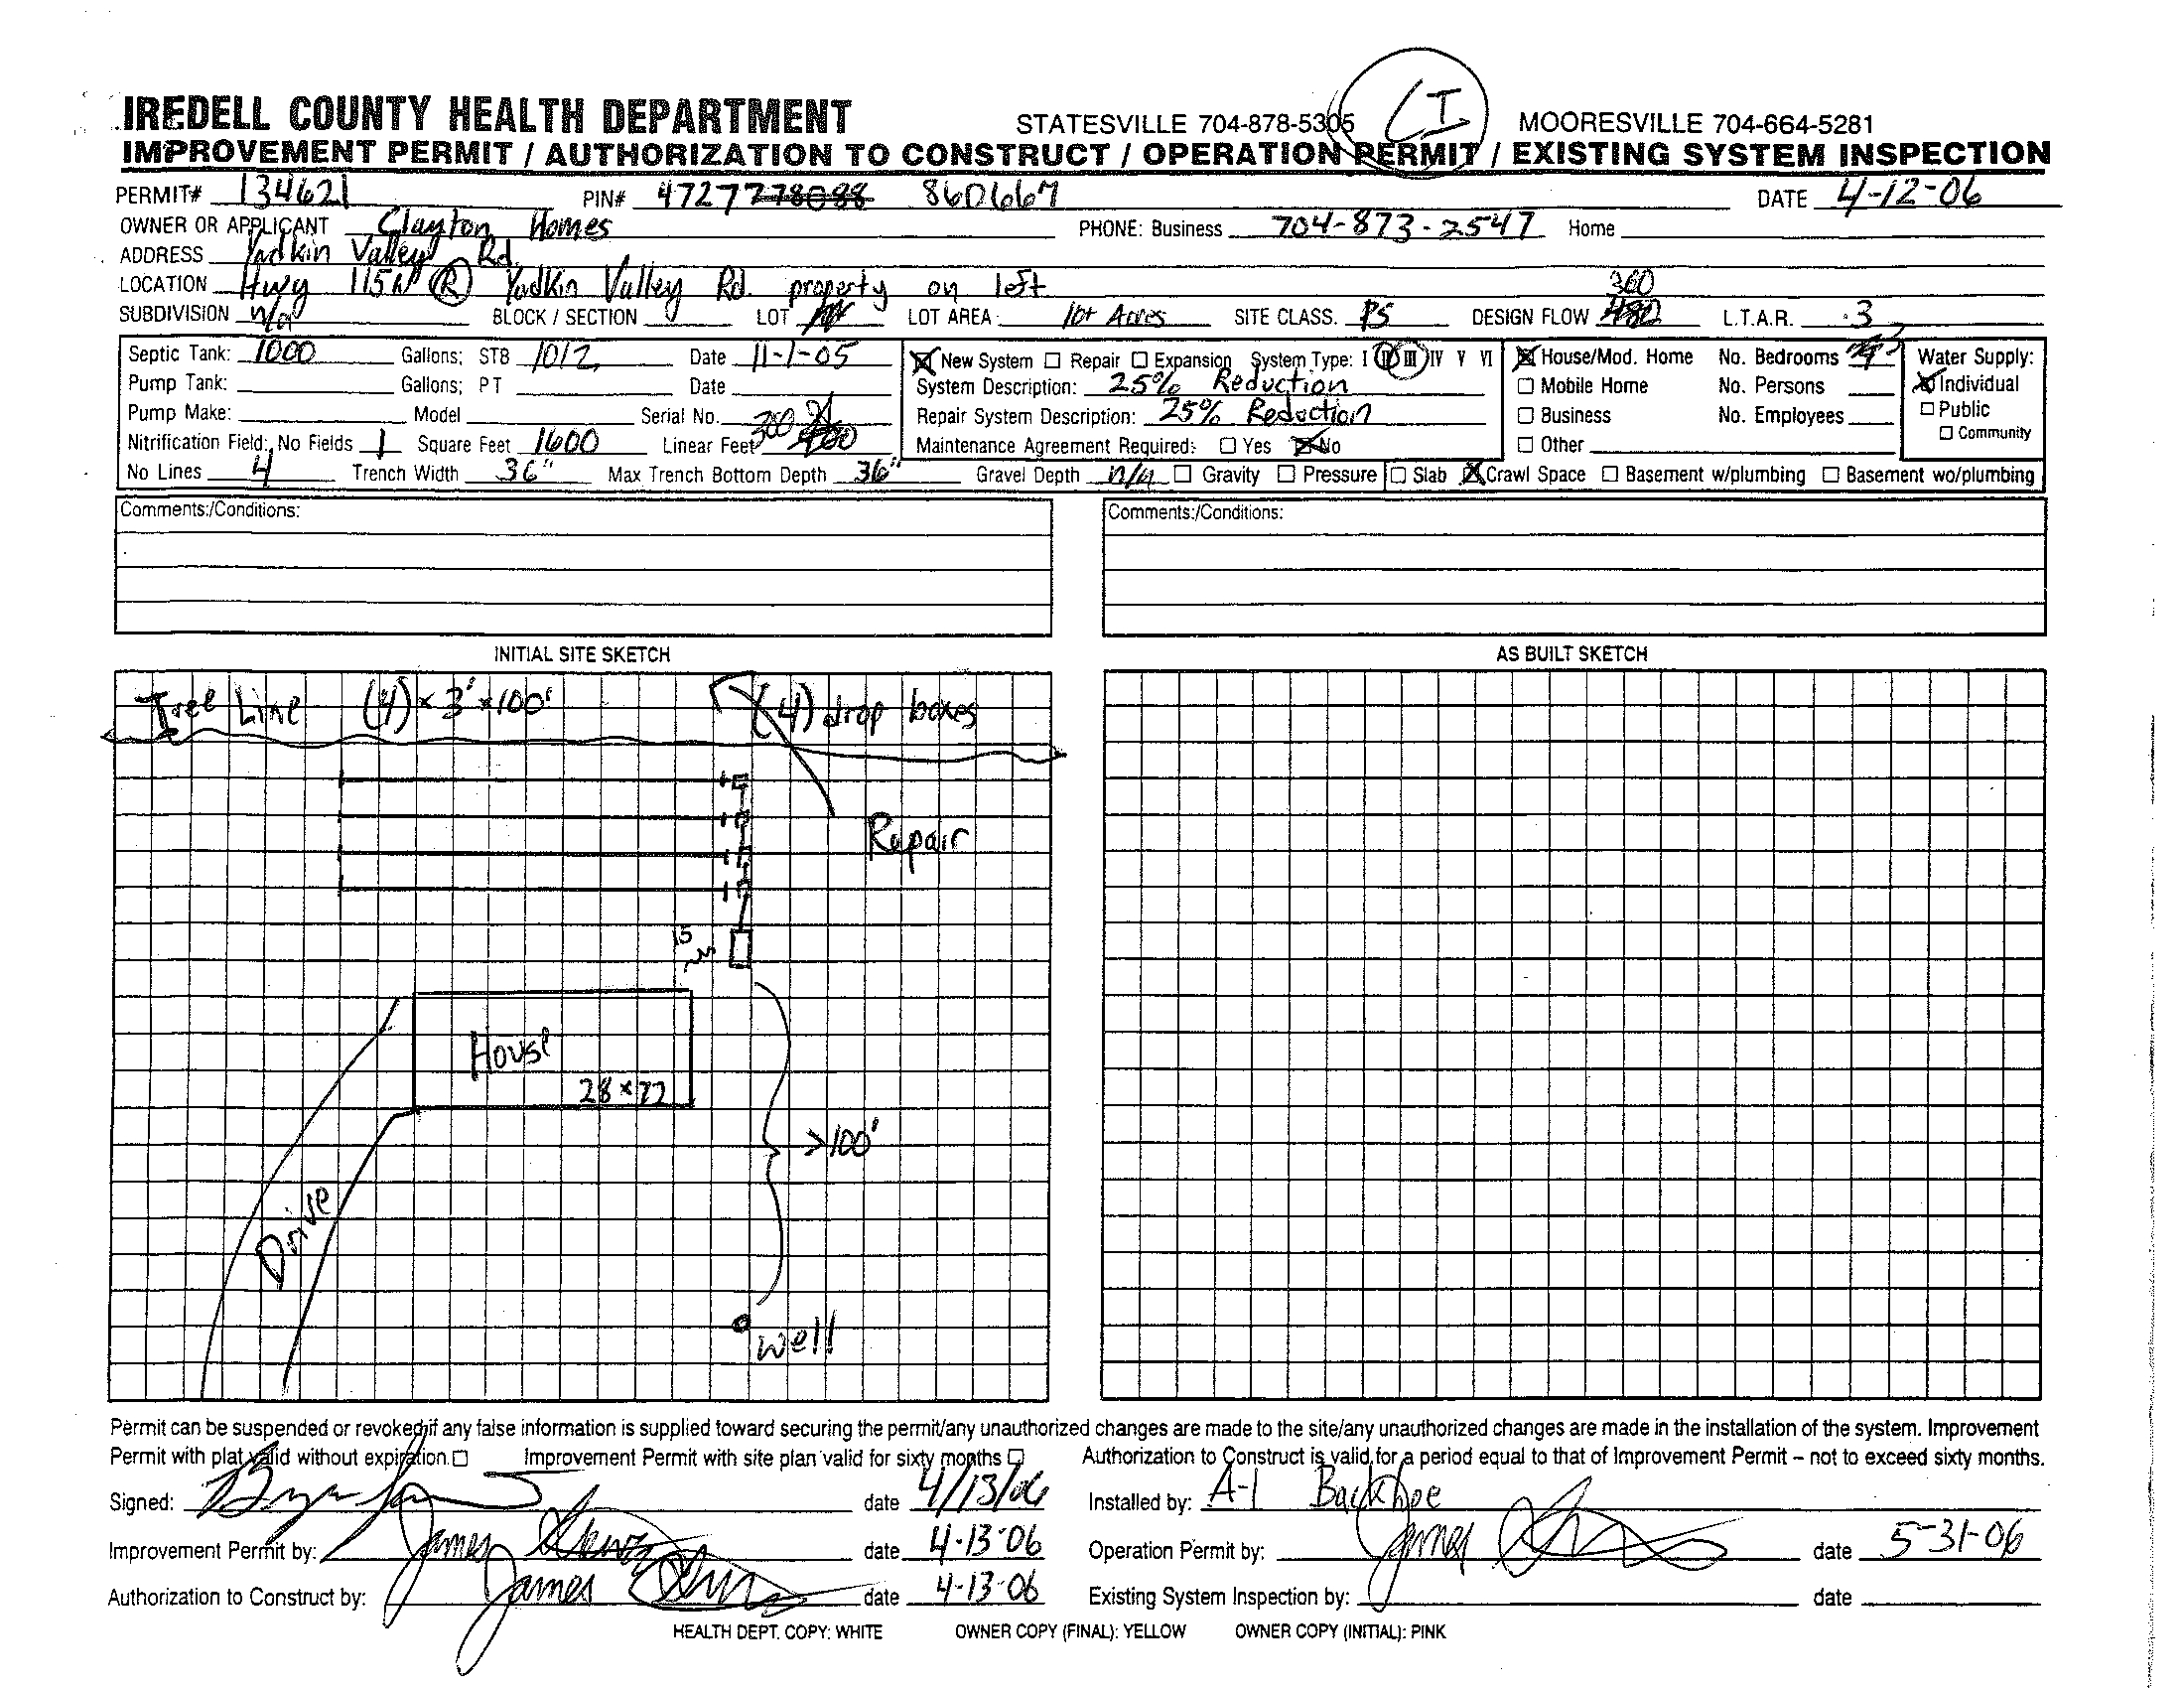 LI
IREDELL COUNTY HEALTH DEPARTMENT STATESVILLE 704-878-5305 MOORESVILLE 704-664-5281
IMPROVEMENT PERMIT / AUTHORIZATION TO CONSTRUCT / OPERATION PERMIT / EXISTING SYSTEM INSPECTION
PERMIT# 134621 PIN# 4727778088 860667 DATE 4-12-06
OWNER OR APPLICANT Clayton Homes PHONE: Business 704-873-2547 Home
ADDRESS Yadkin Valley Rd.
LOCATION Hwy 115N (R) Yadkin Valley Rd. property on left 360
SUBDIVISION n/a BLOCK / SECTION LOT LOT AREA 10+ Acres SITE CLASS. PS DESIGN FLOW 480 L.T.A.R. .3
Septic Tank: 1000 Gallons; STB 1012 Date 11-1-05
Pump Tank: Gallons; PT Date
Pump Make: Model Serial No.
Nitrification Field: No Fields 1 Square Feet 1600 Linear Feet 300 400
No Lines 4 Trench Width 36" Max Trench Bottom Depth 36" Gravel Depth n/a Gravity Pressure
New System Repair Expansion System Type: I II III IV V VI
System Description: 25% Reduction
Repair System Description: 25% Reduction
Maintenance Agreement Required: Yes No
House/Mod. Home No. Bedrooms 4 3
Mobile Home No. Persons
Business No. Employees
Other
Water Supply:
Individual
Public
Community
Slab Crawl Space Basement w/plumbing Basement wo/plumbing
Comments:/Conditions:
Comments:/Conditions:
INITIAL SITE SKETCH
Tree Line (4) x 3' x 100' (4) drop boxes
Repair
15
House
28 x 72
>100'
Drive
Well
AS BUILT SKETCH
Permit can be suspended or revoked if any false information is supplied toward securing the permit/any unauthorized changes are made to the site/any unauthorized changes are made in the installation of the system. Improvement
Permit with plat valid without expiration. Improvement Permit with site plan valid for sixty months Authorization to Construct is valid for a period equal to that of Improvement Permit – not to exceed sixty months.
Signed: date 4/13/06 Installed by: A-1 Backhoe
Improvement Permit by: James date 4-13-06 Operation Permit by: James date 5-31-06
Authorization to Construct by: James date 4-13-06 Existing System Inspection by: date
HEALTH DEPT. COPY: WHITE OWNER COPY (FINAL): YELLOW OWNER COPY (INITIAL): PINK